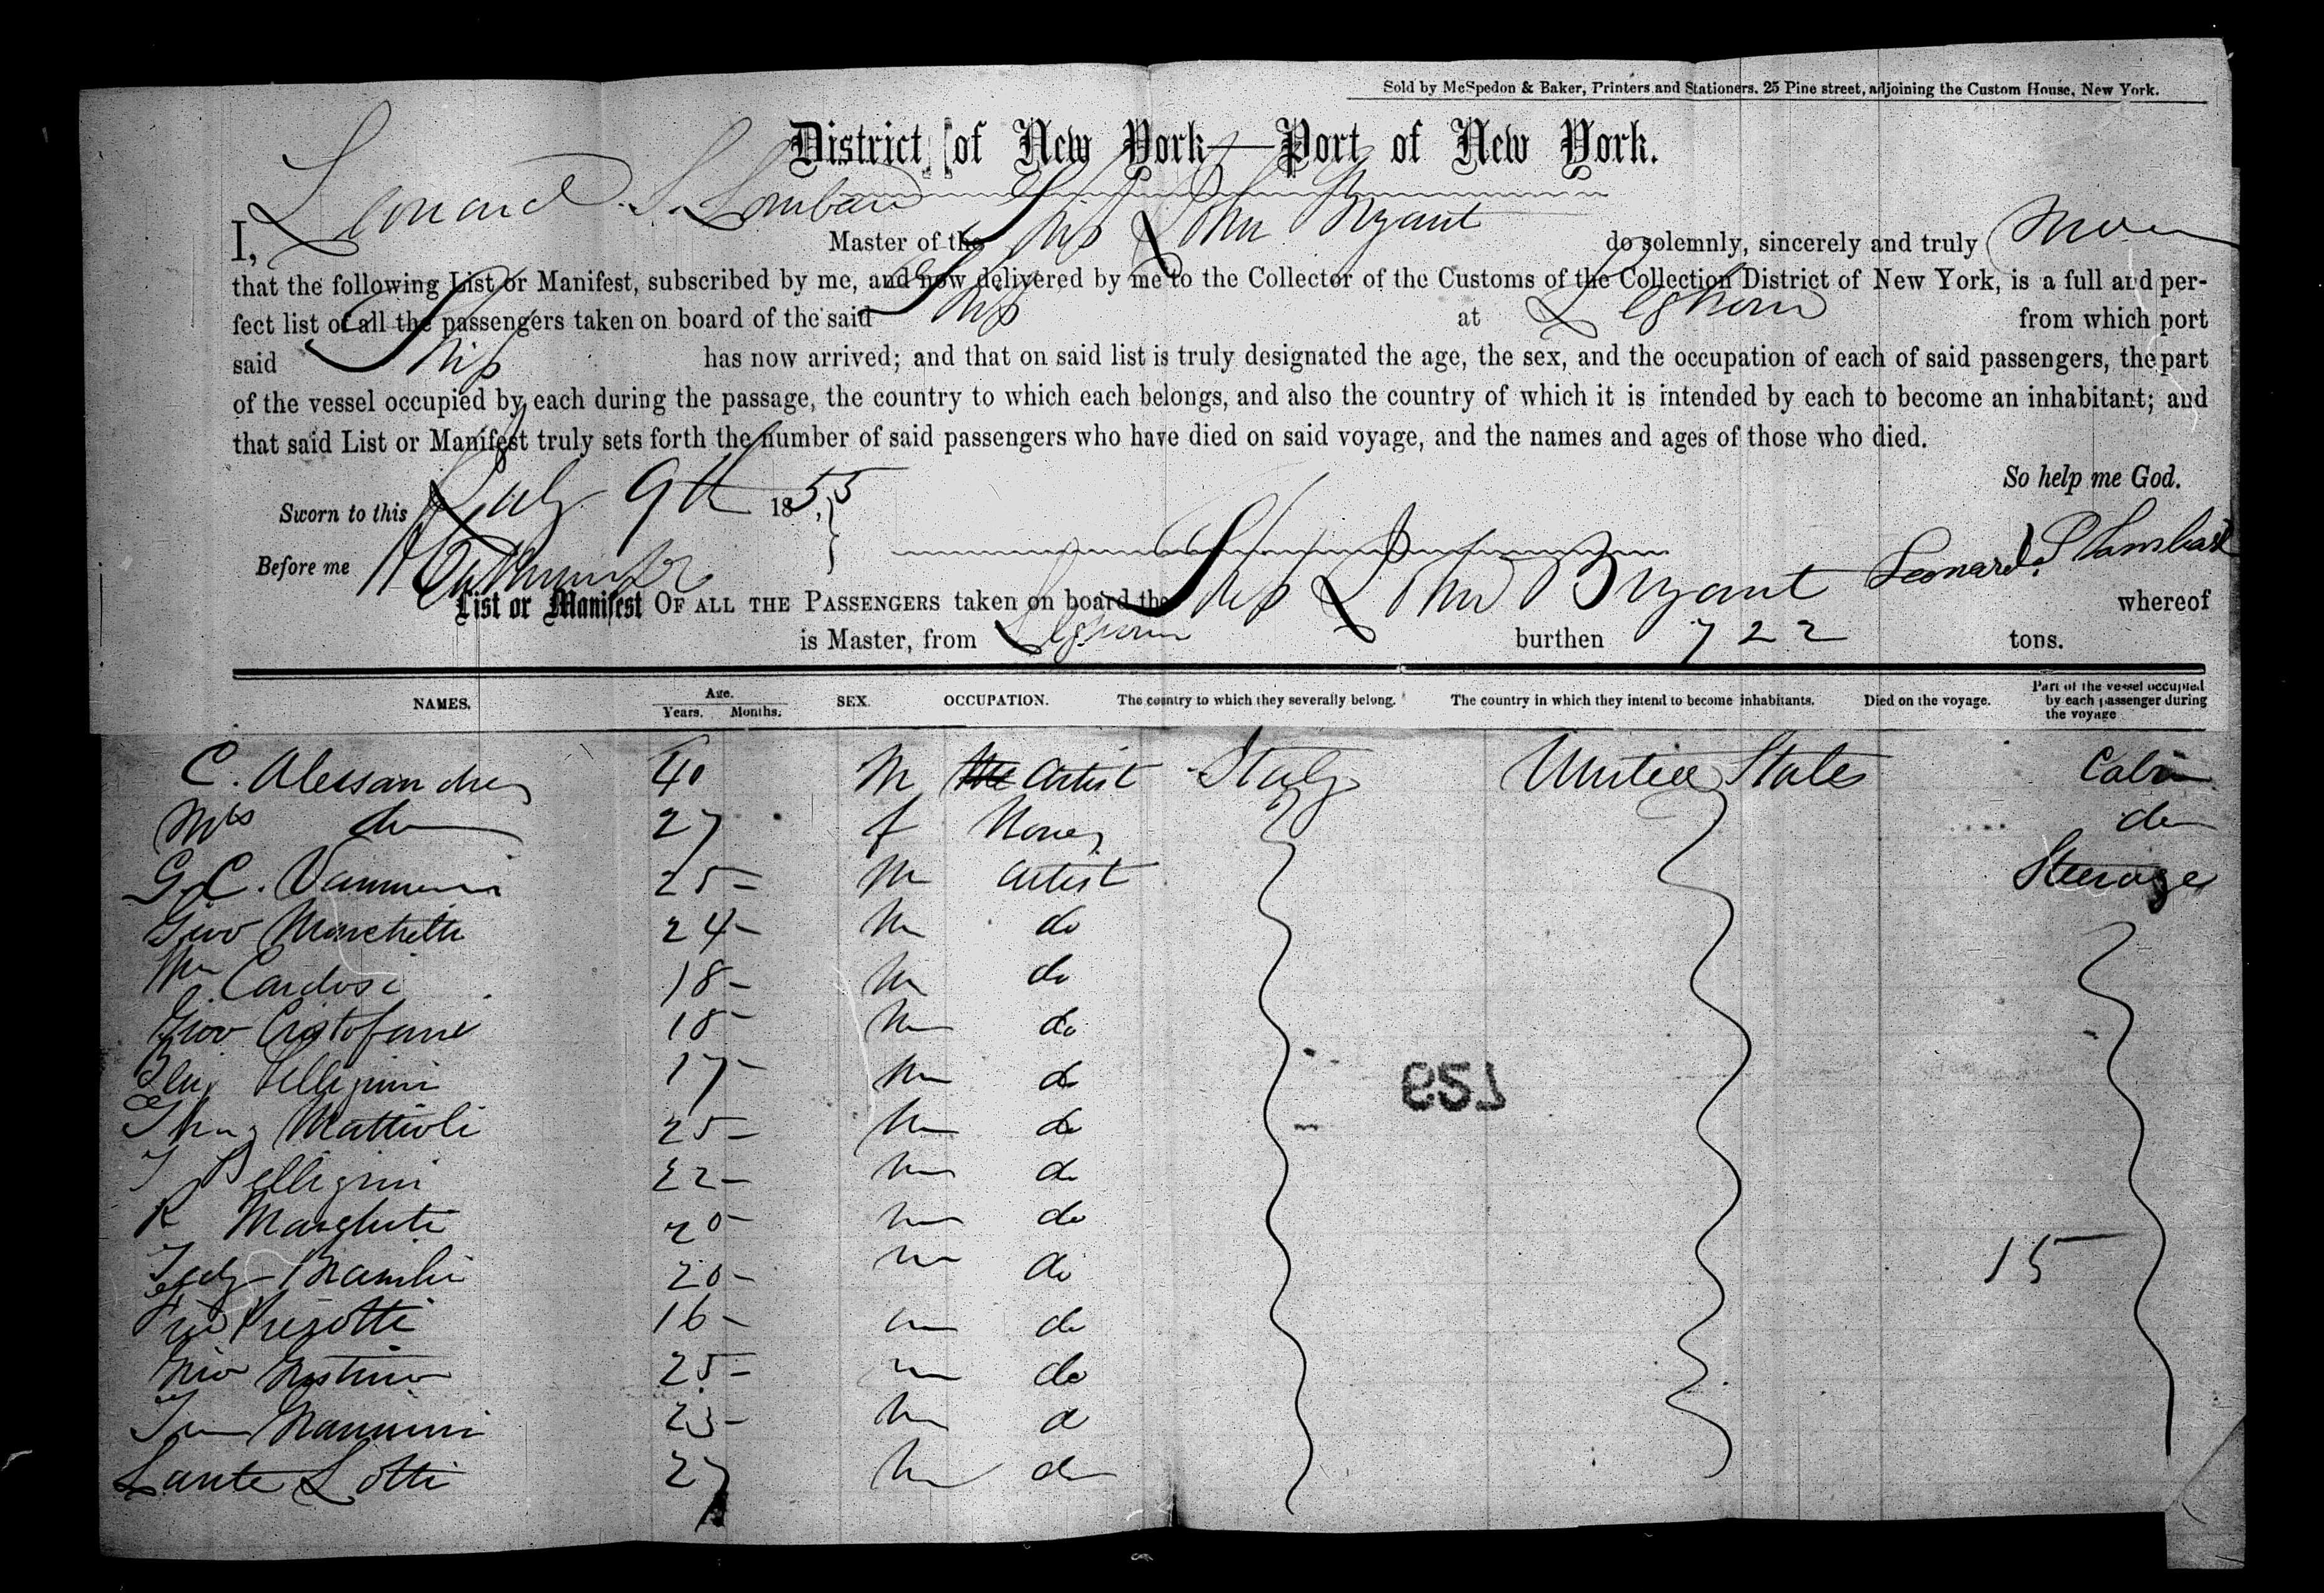 Sold by McSpedon & Baker, Printers and Stationers. 25 Pine street, adjoining the Custom House, New York.
District of New York—Port of New York.
I, Leonard S. Lombard Master of the Ship John Bryant do solemnly, sincerely and truly
that the following List or Manifest, subscribed by me, and now delivered by me to the Collector of the Customs of the Collection District of New York, is a full and per-
fect list of all the passengers taken on board of the said Ship at Leghorn from which port
said Ship has now arrived; and that on said list is truly designated the age, the sex, and the occupation of each of said passengers, the part
of the vessel occupied by each during the passage, the country to which each belongs, and also the country of which it is intended by each to become an inhabitant; and
that said List or Manifest truly sets forth the number of said passengers who have died on said voyage, and the names and ages of those who died.
So help me God.
Sworn to this July 9th 1855,
Before me
Leonard S Lombard
List or Manifest OF ALL THE PASSENGERS taken on board the Ship John Bryant whereof
is Master, from Leghorn burthen 722 tons.
NAMES. Age. Years. Months. SEX. OCCUPATION. The country to which they severally belong. The country in which they intend to become inhabitants. Died on the voyage. Part of the vessel occupied by each passenger during the voyage
C. Alessandre 40 M Artist Italy United States Cabin
Mrs do 27 f None do
G. C. Vannucci 25 M Artist Steerage
Giov Marchetti 24 M do
Cardosi 18 M do
Giov Cristofani 18 M do
Pellegrini 17 M do
Mattioli 25 M do
Pellegrini 22 M do
R 20 M do
20 M do
15
16 M do
Gio 25 M do
Nannini 23 M do
Sante Lotti 27 M do
159